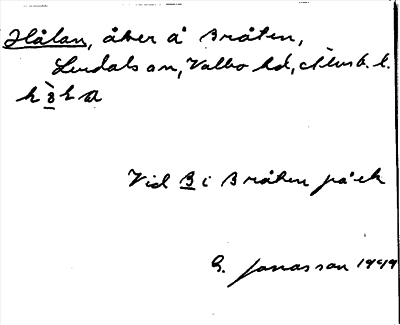 Hålan, åker å Bråten,
Lerdals sn, Valbo hd, Älvsb. l.
Vid B i Bråten på ek
G. Jonasson 1949